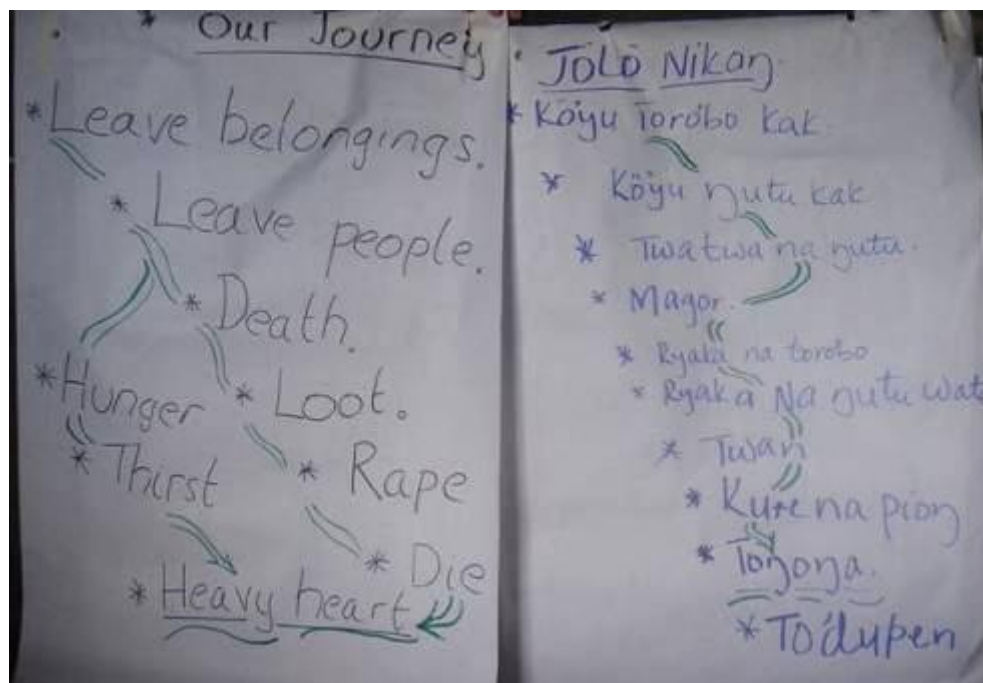 * Our Journey
* Leave belongings.
* Leave people.
* Death.
* Hunger
* Loot.
* Thirst
* Rape
* Die
* Heavy heart
Jölö Nikaŋ
* Kö'yu Torobo kak
* Kö'yu ŋutu kak
* Twatwa na ŋutu.
* Magor.
* Ryaka na torobo
* Ryaka Na ŋutu wate
* Twan
* Kure na pioŋ
* Toŋoŋa.
* To'dupen